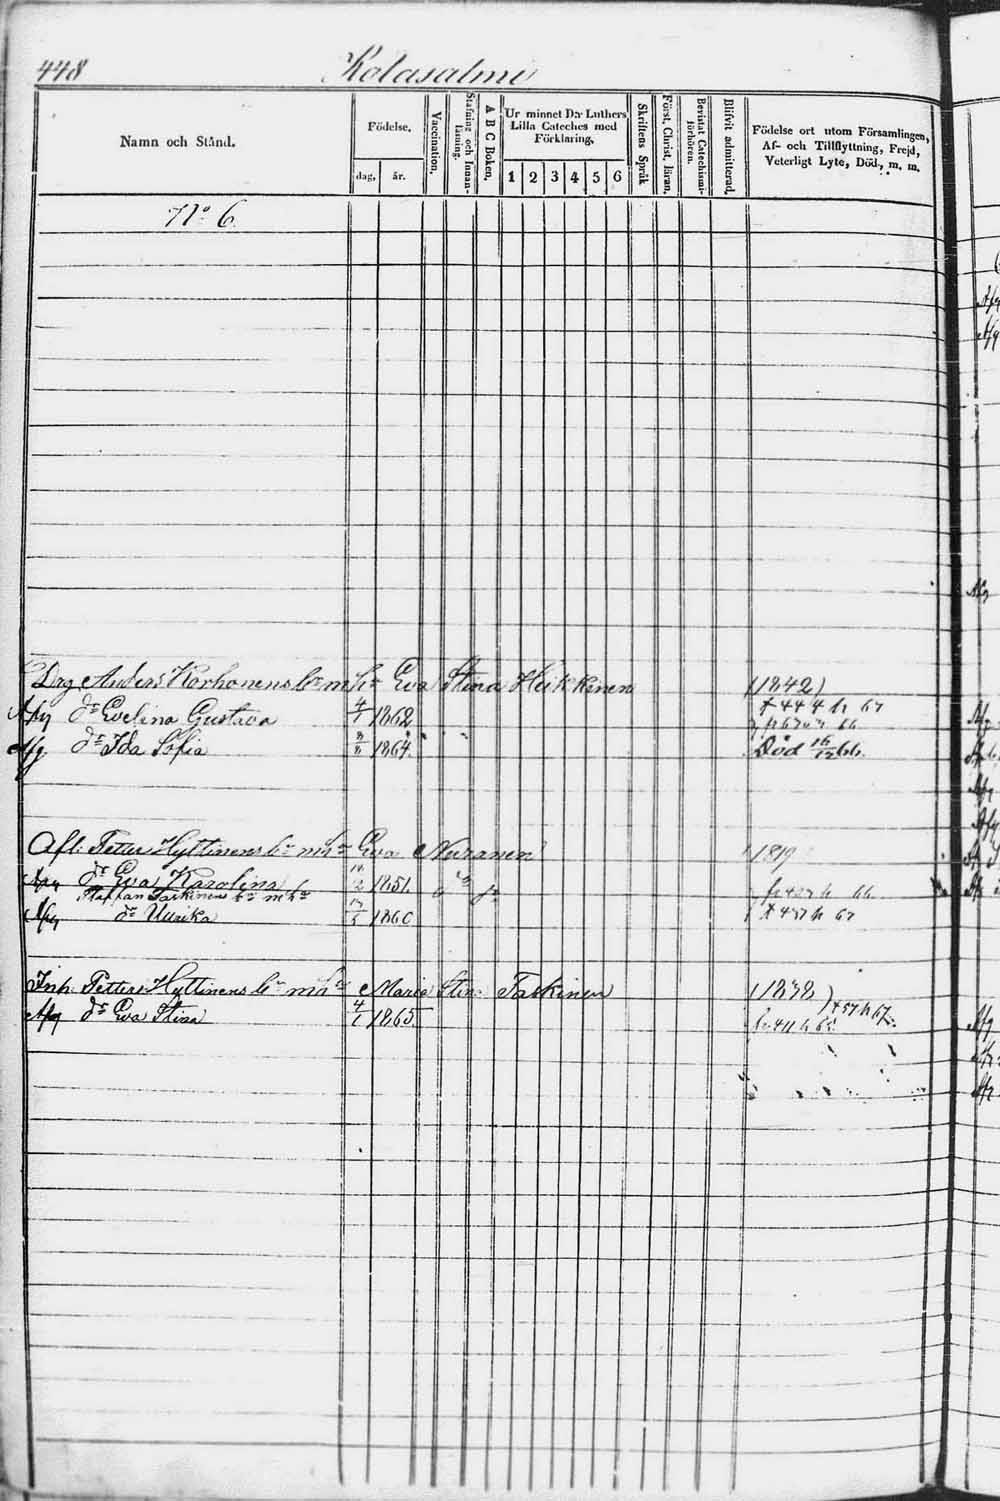 448 Kolasalmi
Namn och Stånd.
Födelse,
dag, år.
Vaccination,
Stafning och Innan-
läsning.
A B C Boken,
Ur minnet D:r Luthers
Lilla Cateches med
Förklaring,
1 2 3 4 5 6
Skriftens Språk
Först, Christ, läran,
Bevistat Catechismi-
förhören.
Blifvit admitterad,
Födelse ort utom Församlingen,
Af- och Tillflyttning, Frejd,
Veterligt Lyte, Död, m. m.
No 6
Drg Anders Korhonens Eva Stina Heikkinen (1842)
dr Evelina Gustava 4/1 1862 444 h 67
66
dr Ida Sofia 8/8 1864. Död 16/12 66.
Petter Hyttinens Eva Nuranen 1819
dr Eva Karolina 1851. 66
Staffan Taskinens
dr Ulrika 1860 67
Inh. Petter Hyttinens Maria Stina Taskinen (1838)
57 h 67
dr Eva Stina 4/1 1865